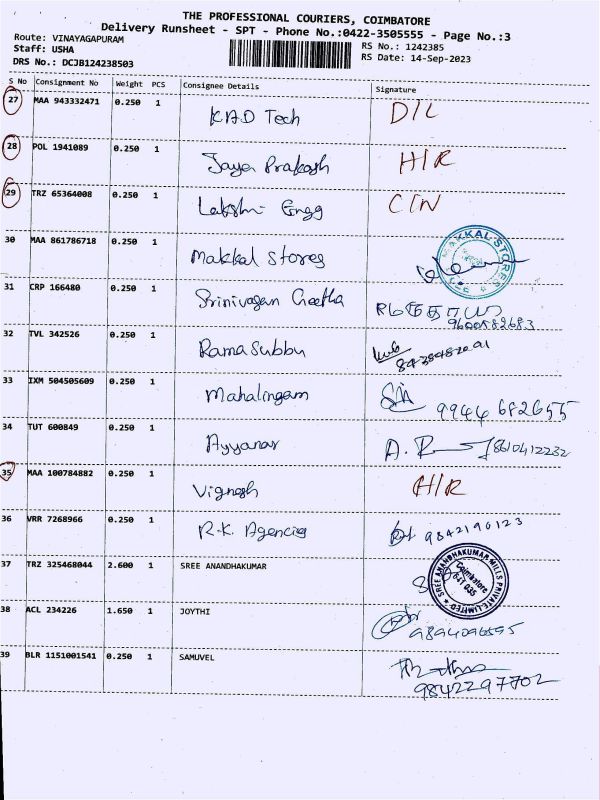 THE PROFESSIONAL COURIERS, COIMBATORE
Delivery Runsheet - SPT - Phone No.:0422-3505555 - Page No.:3
Route: VINAYAGAPURAM
Staff: USHA
DRS No.: DCJB124238503
RS No.: 1242385
RS Date: 14-Sep-2023
S No Consignment No Weight PCS Consignee Details Signature
27 MAA 943332471 0.250 1 KAD Tech D/L
28 POL 1941089 0.250 1 Jaya Prakash H/R
29 TRZ 65364008 0.250 1 Lakshmi Engg C/N
30 MAA 861786718 0.250 1 Makkal Stores MAKKAL STORES
31 CRP 166480 0.250 1 Srinivasan Geetha
9600582683
32 TVL 342526 0.250 1 Rama Subbu
33 IXM 504505609 0.250 1 Mahalingam 9944 682655
34 TUT 600849 0.250 1 Ayyanar A. 8610412232
35 MAA 100784882 0.250 1 Vignesh H/R
36 VRR 7268966 0.250 1 R.K. Agencies 9842190123
37 TRZ 325468044 2.600 1 SREE ANANDHAKUMAR SREE ANANDHAKUMAR MILLS PRIVATE LIMITED Coimbatore 641 035
38 ACL 234226 1.650 1 JOYTHI
9894096595
39 BLR 1151001541 0.250 1 SAMUVEL
9842297702